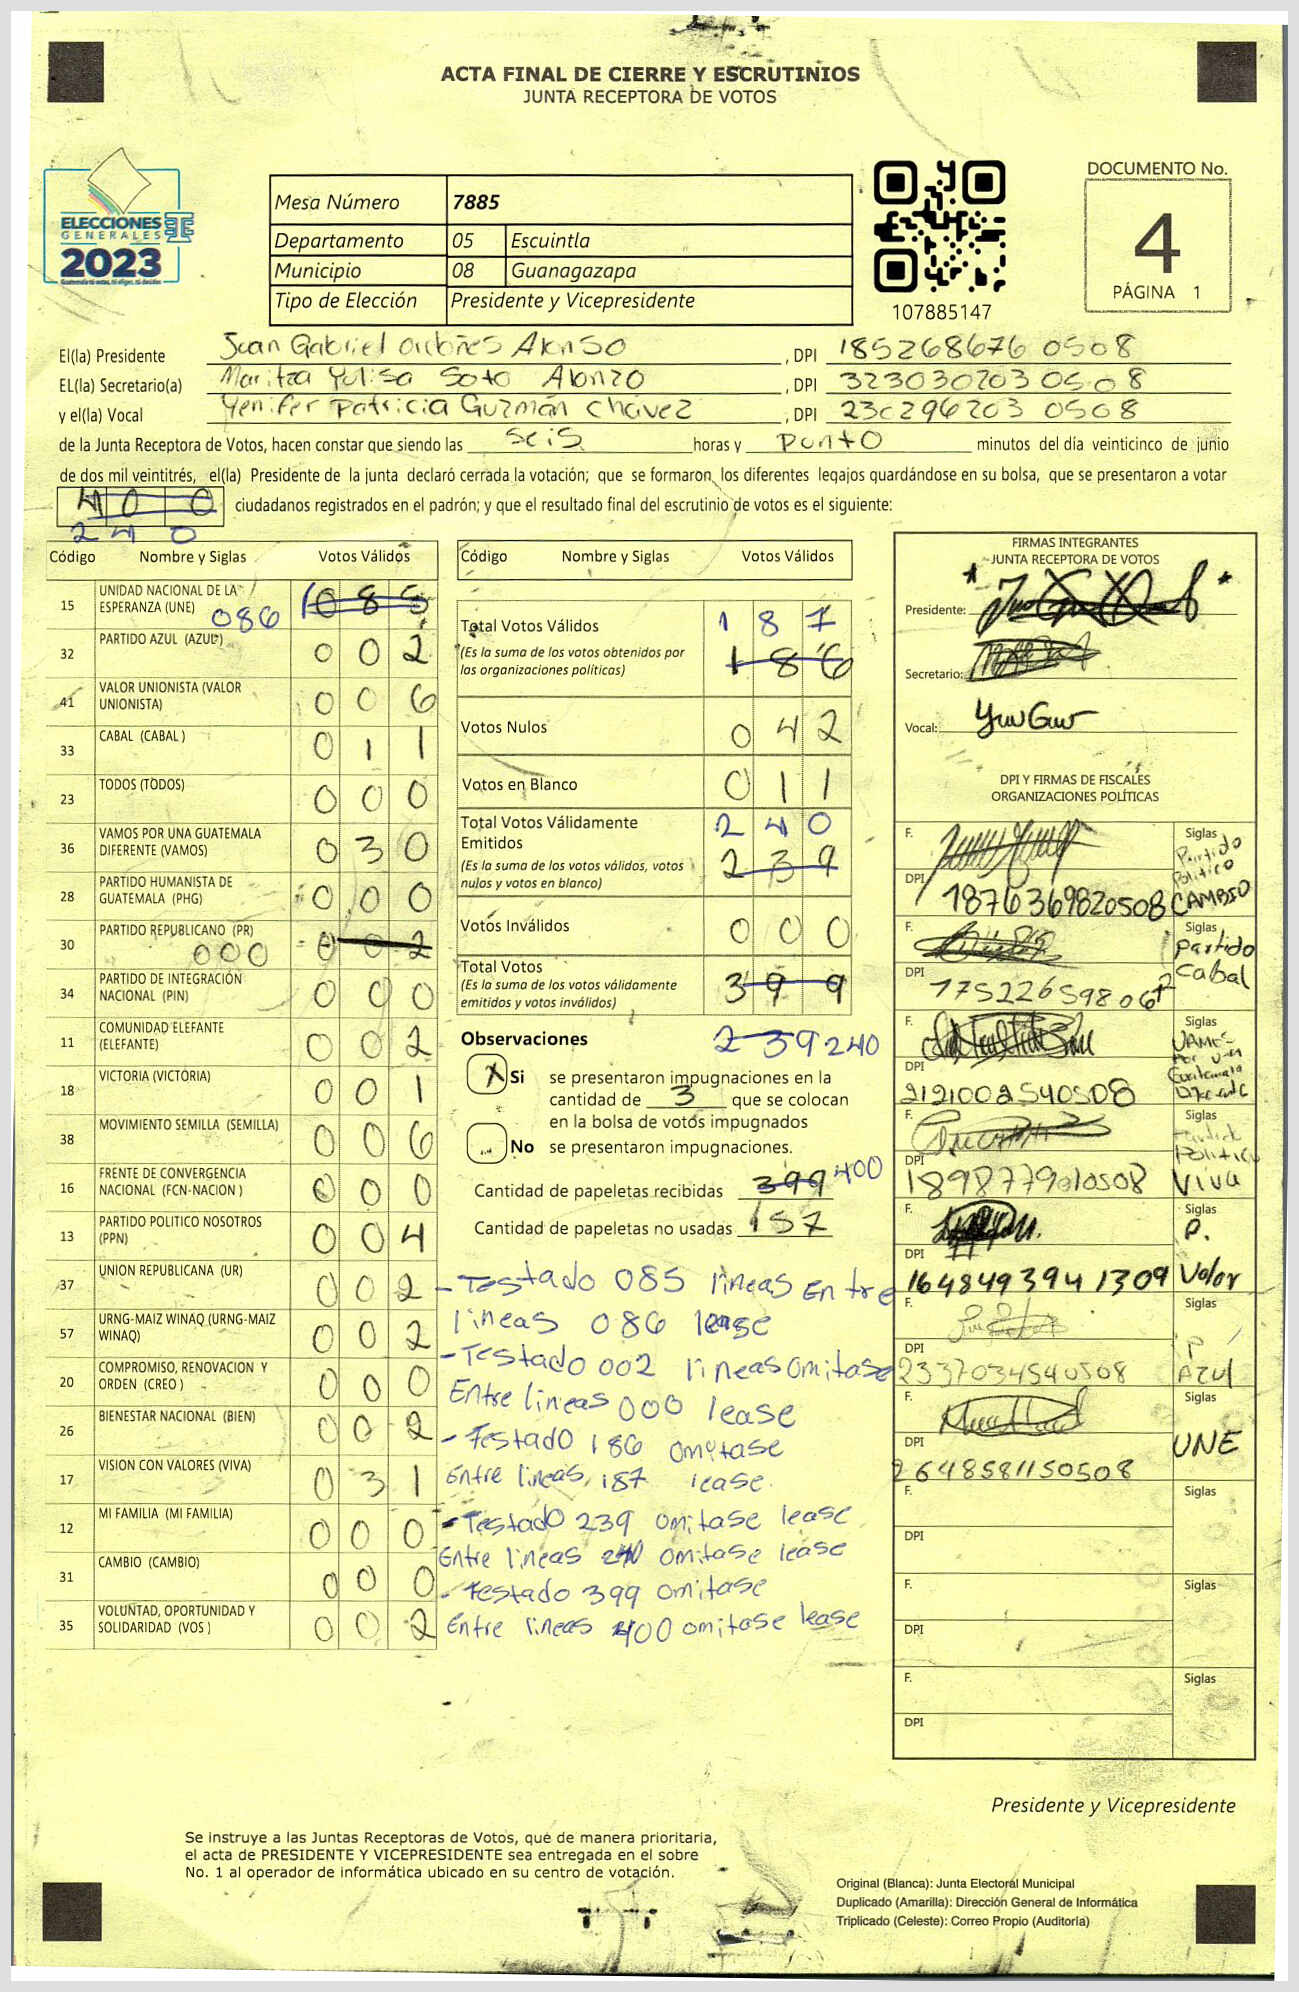 ACTA FINAL DE CIERRE Y ESCRUTINIOS
JUNTA RECEPTORA DE VOTOS
ELECCIONES
GENERALES
2023
Mesa Número 7885
Departamento 05 Escuintla
Municipio 08 Guanagazapa
Tipo de Elección Presidente y Vicepresidente
107885147
DOCUMENTO No.
4
PÁGINA 1
El(la) Presidente Juan Gabriel Alonso , DPI 185268676 0508
EL(la) Secretario(a) Maritza Yulisa Soto Alonzo , DPI 323030203 0508
y el(la) Vocal Yenifer Patricia Guzmán Chávez , DPI 230296203 0508
de la Junta Receptora de Votos, hacen constar que siendo las seis horas y punto minutos del día veinticinco de junio
de dos mil veintitrés, el(la) Presidente de la junta declaró cerrada la votación; que se formaron los diferentes legajos quardándose en su bolsa, que se presentaron a votar
400 ciudadanos registrados en el padrón; y que el resultado final del escrutinio de votos es el siguiente:
240
Código Nombre y Siglas Votos Válidos
15 UNIDAD NACIONAL DE LA ESPERANZA (UNE) 086 085
32 PARTIDO AZUL (AZUL) 002
41 VALOR UNIONISTA (VALOR UNIONISTA) 006
33 CABAL (CABAL ) 011
23 TODOS (TODOS) 000
36 VAMOS POR UNA GUATEMALA DIFERENTE (VAMOS) 030
28 PARTIDO HUMANISTA DE GUATEMALA (PHG) 000
30 PARTIDO REPUBLICANO (PR) 000 002
34 PARTIDO DE INTEGRACIÓN NACIONAL (PIN) 000
11 COMUNIDAD ELEFANTE (ELEFANTE) 002
18 VICTORIA (VICTORIA) 001
38 MOVIMIENTO SEMILLA (SEMILLA) 006
16 FRENTE DE CONVERGENCIA NACIONAL (FCN-NACION ) 000
13 PARTIDO POLITICO NOSOTROS (PPN) 004
37 UNION REPUBLICANA (UR) 002
57 URNG-MAIZ WINAQ (URNG-MAIZ WINAQ) 002
20 COMPROMISO, RENOVACION Y ORDEN (CREO ) 000
26 BIENESTAR NACIONAL (BIEN) 002
17 VISION CON VALORES (VIVA) 031
12 MI FAMILIA (MI FAMILIA) 000
31 CAMBIO (CAMBIO) 000
35 VOLUNTAD, OPORTUNIDAD Y SOLIDARIDAD (VOS ) 002
Código Nombre y Siglas Votos Válidos
Total Votos Válidos 187
(Es la suma de los votos obtenidos por las organizaciones políticas) 186
Votos Nulos 042
Votos en Blanco 011
Total Votos Válidamente Emitidos 240
(Es la suma de los votos válidos, votos nulos y votos en blanco) 239
Votos Inválidos 000
Total Votos
(Es la suma de los votos válidamente emitidos y votos inválidos) 399
Observaciones 239 240
X Si se presentaron impugnaciones en la
cantidad de 3 que se colocan
en la bolsa de votos impugnados
No se presentaron impugnaciones.
Cantidad de papeletas recibidas 399 400
Cantidad de papeletas no usadas 157
- Testado 085 lineas Entre
lineas 086 lease
- Testado 002 lineas omitase
Entre lineas 000 lease
- Testado 186 omitase
Entre lineas 187 lease.
- Testado 239 omitase lease
Entre lineas 240 omitase lease
- Testado 399 omitase
Entre lineas 400 omitase lease
FIRMAS INTEGRANTES
JUNTA RECEPTORA DE VOTOS
Presidente:
Secretario:
Vocal:
DPI Y FIRMAS DE FISCALES
ORGANIZACIONES POLÍTICAS
F. Siglas Partido Politico CAMBIO
DPI 1876369820508
F. Siglas Partido Cabal
DPI
F. Siglas
DPI 2121002540508
F. Siglas Politico VIVA
DPI 1898779010508
F. Siglas P. Valor
DPI 1648493941309
F. Siglas P AZUL
DPI 2337034540508
F. Siglas UNE
DPI 2648581150508
F. Siglas
DPI
F. Siglas
DPI
F. Siglas
DPI
Presidente y Vicepresidente
Se instruye a las Juntas Receptoras de Votos, que de manera prioritaria,
el acta de PRESIDENTE Y VICEPRESIDENTE sea entregada en el sobre
No. 1 al operador de informática ubicado en su centro de votación.
Original (Blanca): Junta Electoral Municipal
Duplicado (Amarilla): Dirección General de Informática
Triplicado (Celeste): Correo Propio (Auditoría)